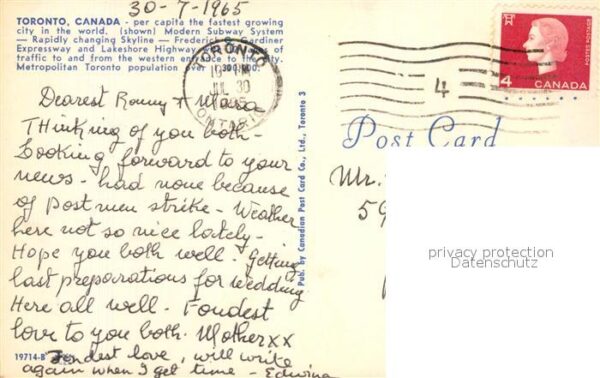 30-7-1965
TORONTO, CANADA - per capita the fastest growing
city in the world. (shown) Modern Subway System
— Rapidly changing Skyline — Frederick G. Gardiner
Expressway and Lakeshore Highway of
traffic to and from the western entrance to the city.
Metropolitan Toronto population over
TORONTO
JUL 30
ONTARIO
4
POSTES POSTAGE
4 CANADA
Dearest Ronny & Maria
Thinking of you both -
Looking forward to your
news - had none because
of Post men strike - Weather
here not so nice lately -
Hope you both well. Getting
last preparations for wedding
Here all well - Fondest
love to you both. Mother xx
Fondest love, will write
again when I get time - Edwina
19714-B
Pub. by Canadian Post Card Co., Ltd., Toronto 3
Post Card
Mr.
59
privacy protection
Datenschutz